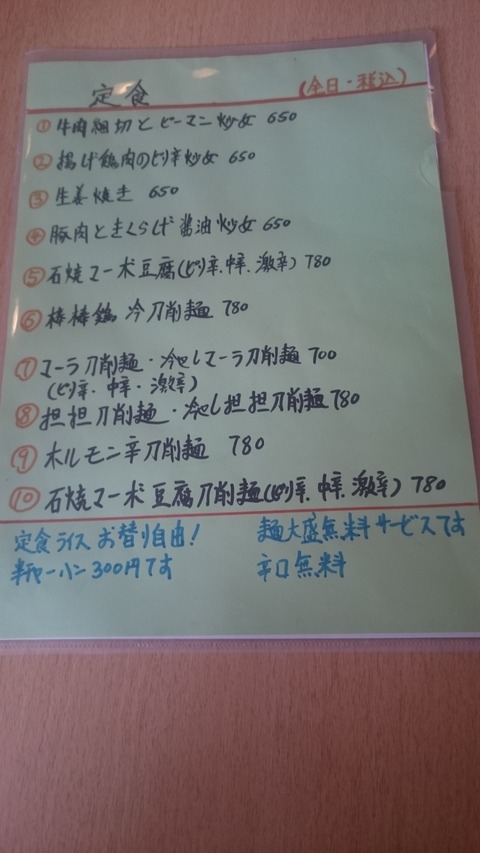 定食 (全日・税込)
① 牛肉細切とピーマン炒め 650
② 揚げ鶏肉のピリ辛炒め 650
③ 生姜焼き 650
④ 豚肉ときくらげ醤油炒め 650
⑤ 石焼マーボ豆腐(ピリ辛、中辛、激辛) 780
⑥ 棒棒鶏 冷刀削麺 780
⑦ マーラ刀削麺・冷やしマーラ刀削麺 700
(ピリ辛・中辛・激辛)
⑧ 担担刀削麺・冷やし担担刀削麺 780
⑨ ホルモン辛刀削麺 780
⑩ 石焼マーボ豆腐刀削麺(ピリ辛、中辛、激辛) 780
定食ライスお替り自由! 麺大盛無料サービスです
半チャーハン300円です 辛口無料